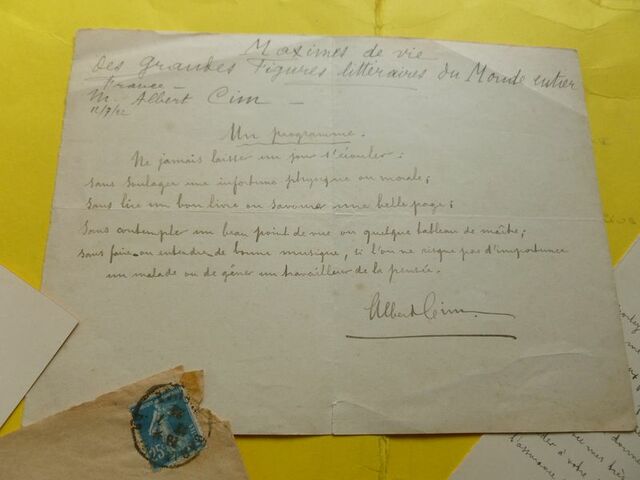 Maximes de vie
des grandes Figures littéraires du Monde entier
France -
M. Albert Cim -
12/9/22
Un programme.
Ne jamais laisser un jour s'écouler :
sans soulager une infortune physique ou morale ;
Sans lire un bon livre ou savourer une belle page ;
Sans contempler un beau point de vue ou quelque tableau de maître ;
sans faire ou entendre de bonne musique, si l'on ne risque pas d'importuner
un malade ou de gêner un travailleur de la pensée.
Albert Cim.
25